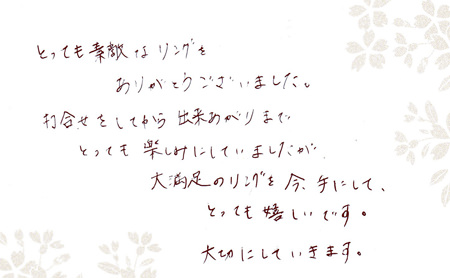 とっても素敵なリングを
ありがとうございました。
打合せをしてから出来あがりまで
とっても楽しみにしていましたが
大満足のリングを今、手にして、
とっても嬉しいです。
大切にしていきます。